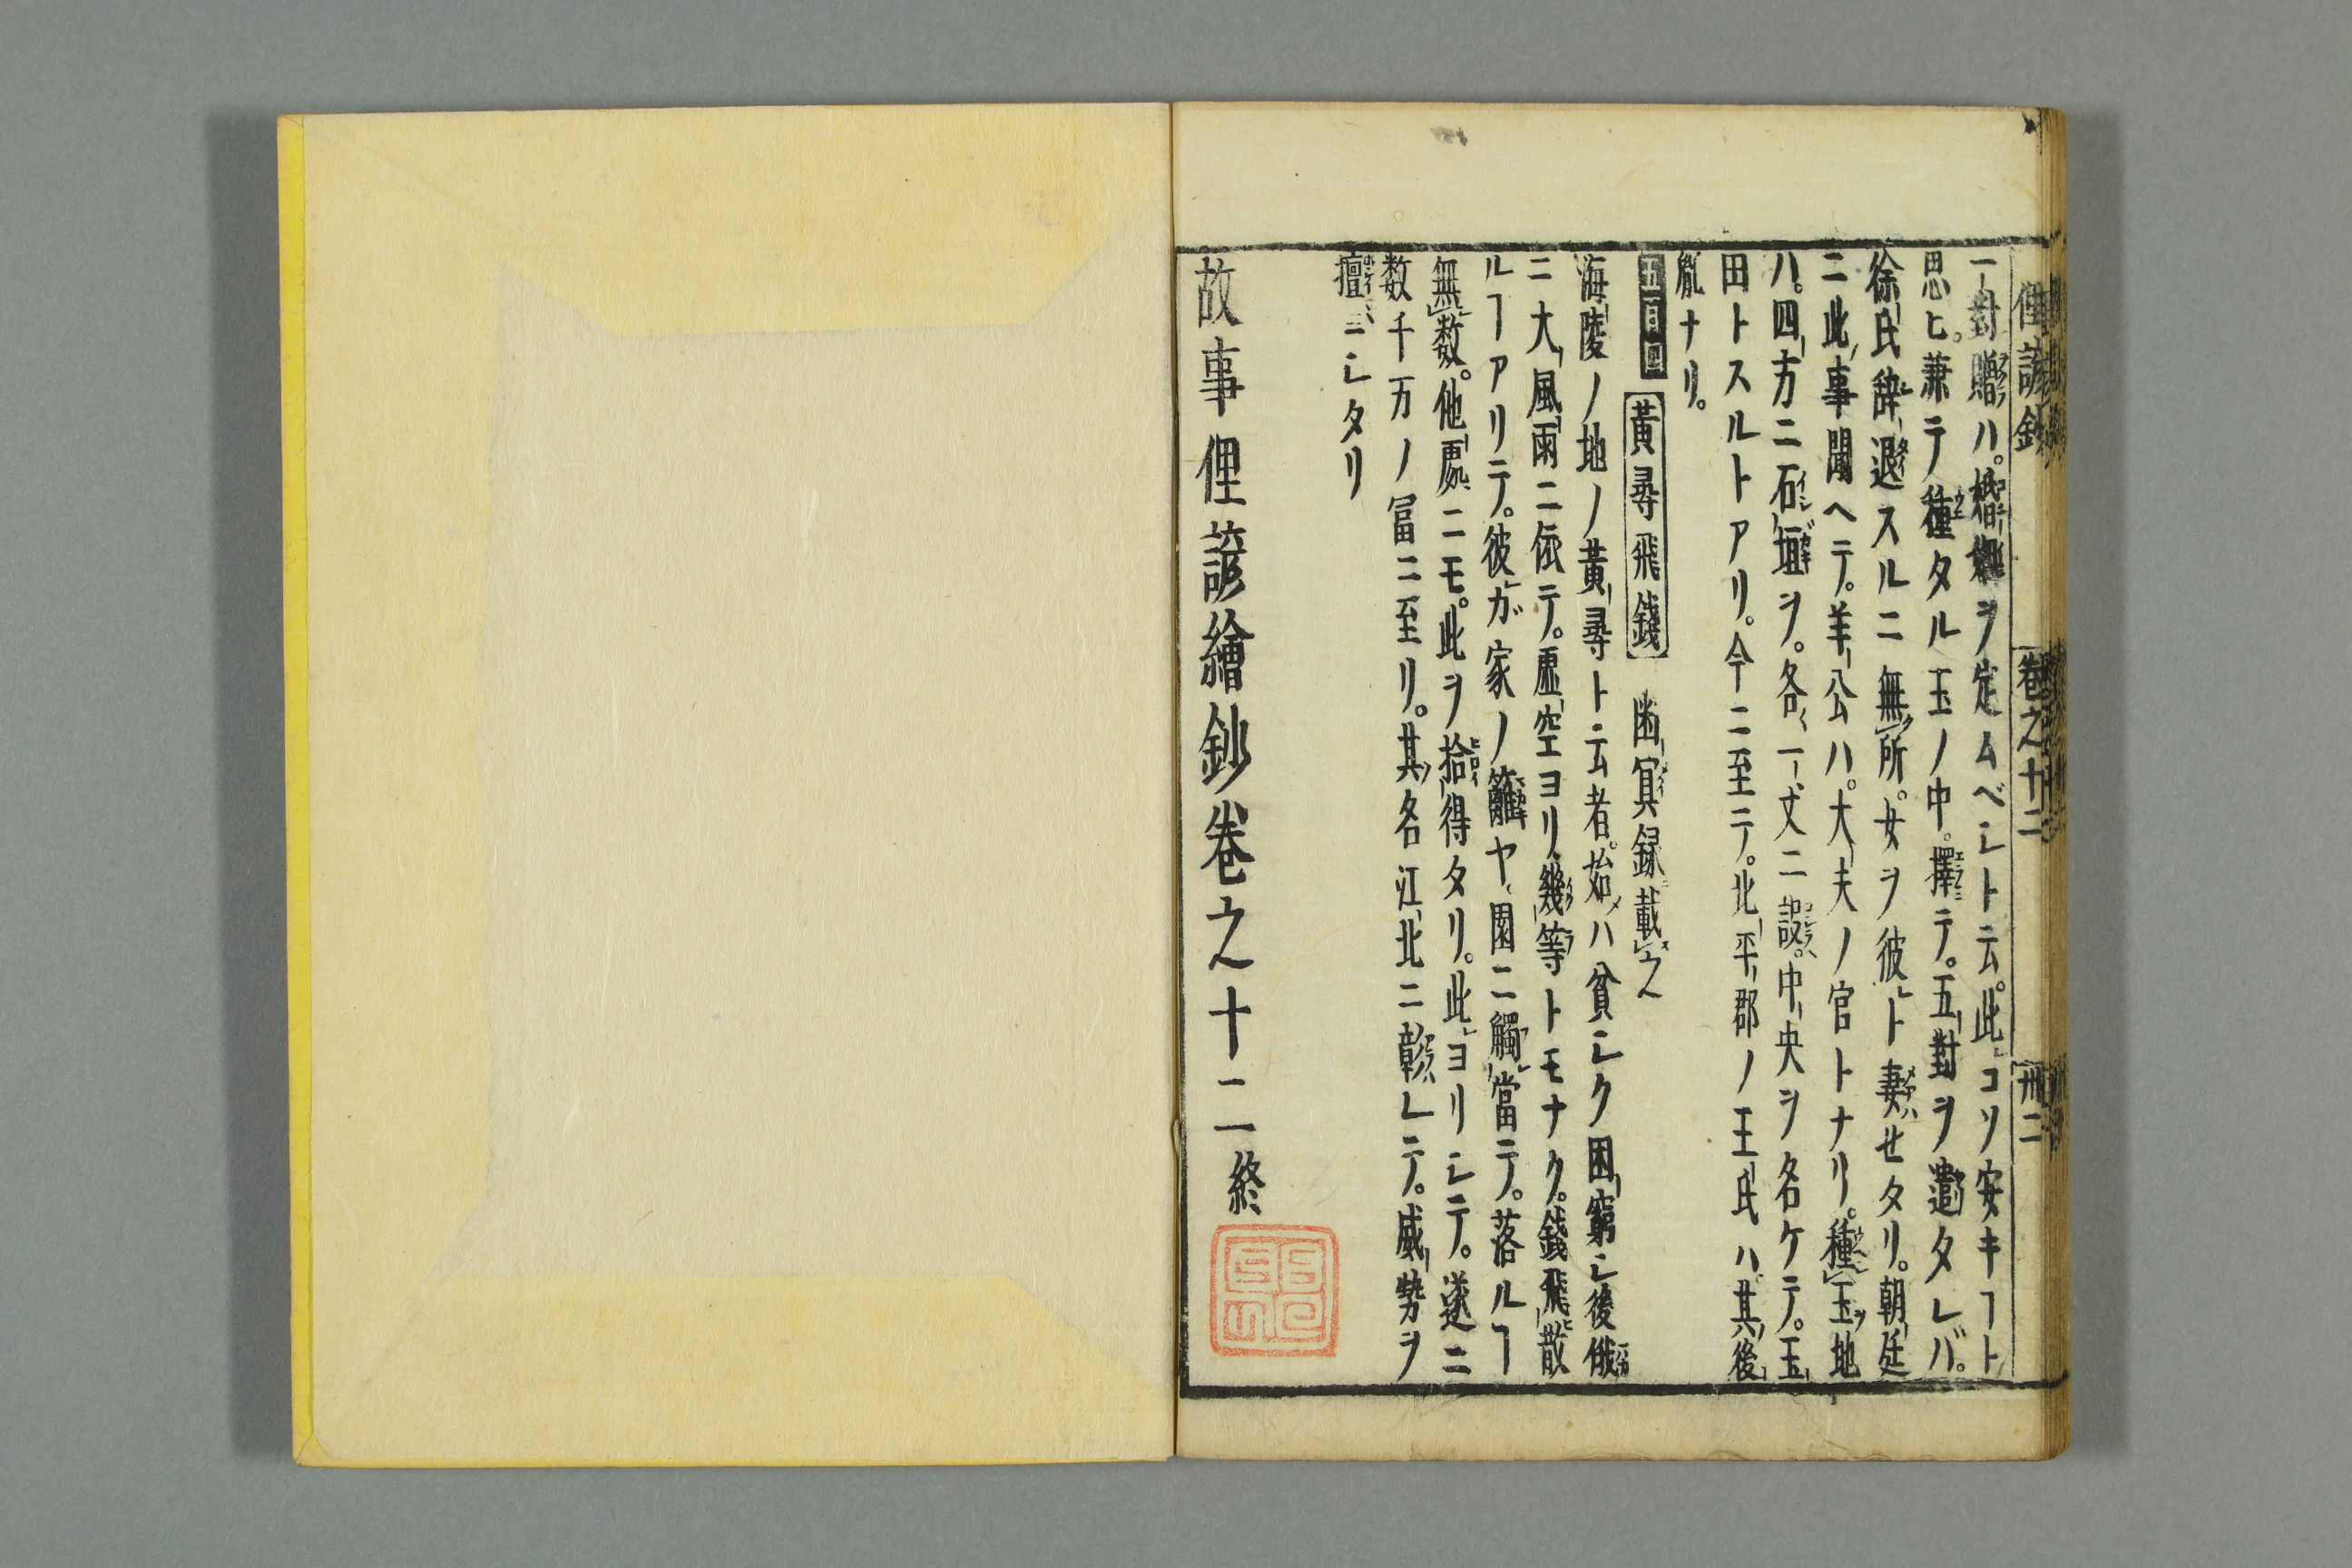 俚諺鈔 卷之十二 卅二
一對贈ハ。婚姻ヲ定ムベシト云。此コソ安キヿト
思ヒ。兼テ種タル玉ノ中。擇テ。五對ヲ遣タレバ。
徐氏辞退スルニ無所。女ヲ彼ト妻セタリ。朝廷
ニ此事聞ヘテ。羊公ハ。大夫ノ官トナリ。種玉地
ハ。四方ニ石垣ヲ。各〻一丈ニ設。中央ヲ名ケテ。玉
田トスルトアリ。今ニ至テ。北平郡ノ王氏ハ。其後
胤ナリ。
五百四 黃尋飛錢 幽冥録載之
海陵ノ地ノ黃尋ト云者。始メハ貧シク困窮シ後俄
ニ大風雨ニ依テ。虛空ヨリ幾等トモナク。錢飛散
ルヿアリテ。彼ガ家ノ籬ヤ園ニ觸當テ。落ルヿ
無數。他處ニモ。此ヲ拾得タリ。此ヨリシテ。遂ニ
数千万ノ冨ニ至リ。其名江北ニ彰レテ。威勢ヲ
擅ニシタリ
故事俚諺繪鈔卷之十二終